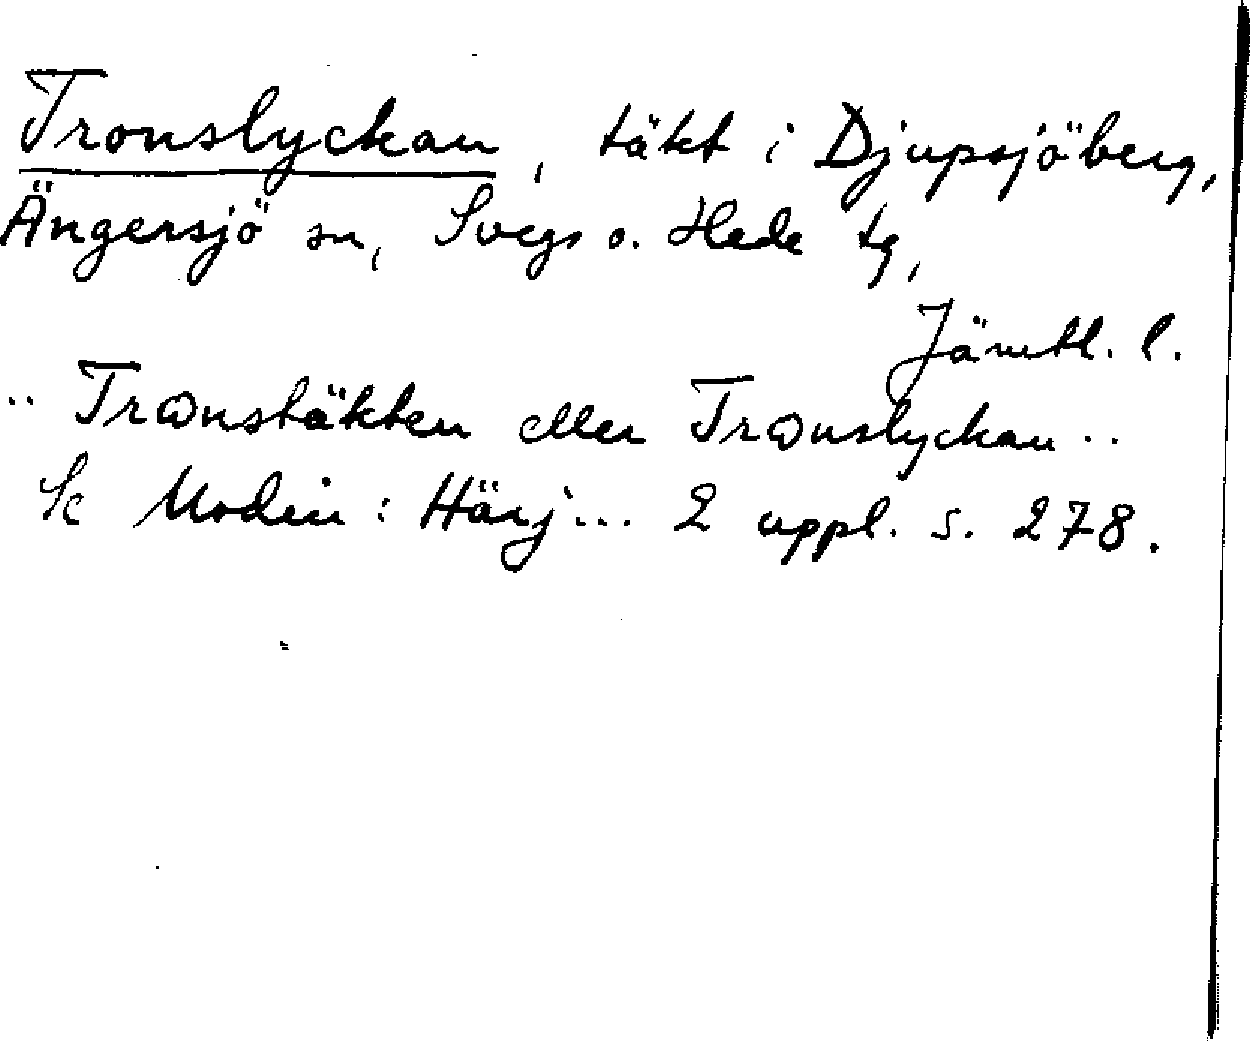 Tronslyckan, täkt i Djupsjöberg,
Ängersjö sn, Svegs o. Hede tg,
Jämtl. l.
.. Tronstäkten eller Tronslyckan ..
Se Modin: Härj... 2 uppl. s. 278.